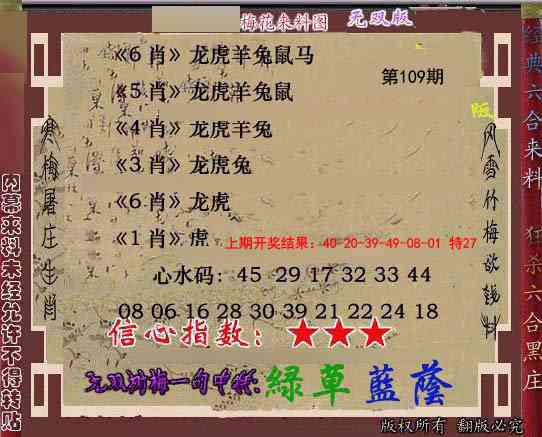 梅花来料图 无双版
《6肖》龙虎羊兔鼠马
第109期
《5肖》龙虎羊兔鼠
《4肖》龙虎羊兔
《3肖》龙虎兔
《6肖》龙虎
《1肖》虎
上期开奖结果：40-20-39-49-08-01 特27
心水码：45 29 17 32 33 44
08 06 16 28 30 39 21 22 24 18
信心指数：★★★
无双 梅一句中特：緑草藍蔭
版权所有 翻版必究
寒梅屠庄生肖
风雪竹梅欲钱料
内幕来料未经允许不得转贴
经典六合来料 狂杀六合黑庄